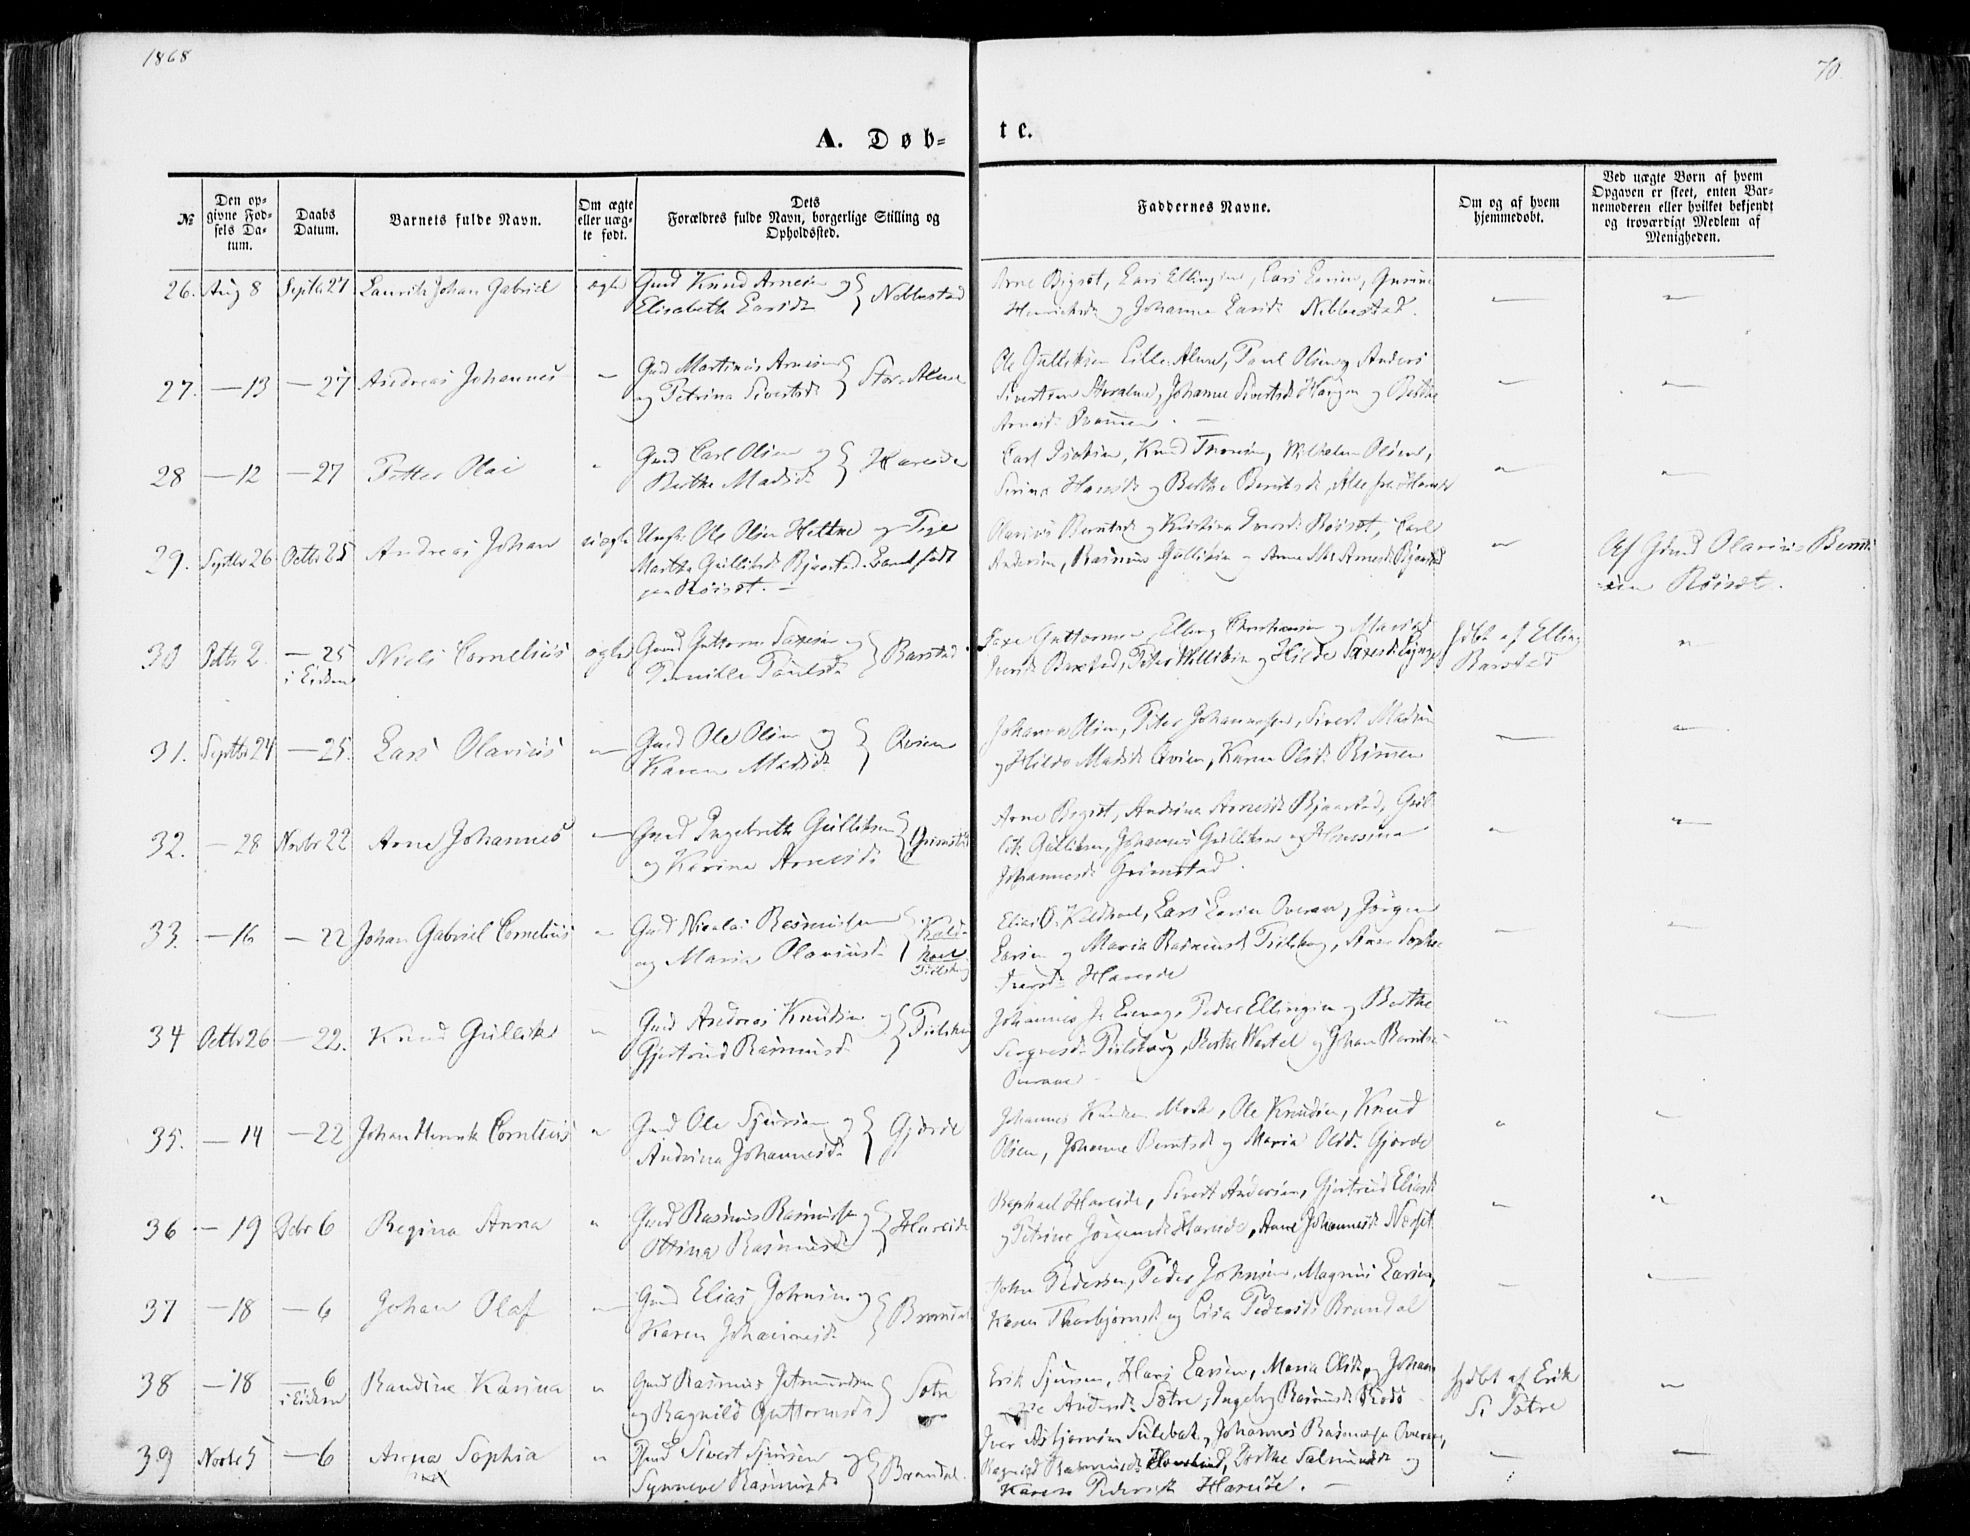 1868
70.
A. Døb-
te.
№
Den op-
givne Fød-
sels Da-
tum.
Daabs
Datum.
Barnets fulde Navn.
Om ægte
eller uæg-
te født.
Dets
Forældres fulde Navn, borgerlige Stilling og
Opholdssted.
Faddernes Navne.
Om og af hvem
hjemmedøbt.
Ved uægte Børn af hvem
Opgaven er skeet, enten Bar-
nemoderen eller hvilket bekjendt
og troværdigt Medlem af
Menigheden.
26. Aug 8 Septbr 27 Laurits Johan Gabriel ægte Gmd Knud Arnesen og
Elisabeth Larsd.
Arne Bigsøt, Lars Ellingsen, Lars Larsen,
og Johanne Larsd.
27. — 13 — 27 Andreas Johannes — Gmd Martinus Arnesen
og Petrina Sivertsd.
Ole Gulliksen Lille Alme, Poul Olsen og Anders
Sivertsen Johanne Sivertsd. Haugen og Berthe
Arnesd.
28 — 12 — 27 Petter Olai " Gmd Carl Olsen og
Berthe Madsd. Hareide
Knud Wilhelm Olsen,
Hansd. og Berthe Berntsd. Alle fra Hareide
29. Septbr 26 Octbr 25 Andreas Johan uægte Ungk. Ole Olsen og Pige
Martha Gulliksd. Bjaastad
paa Röisøt. —
Olavius Berntsen og Kristina Iversd. Röisøt, Carl
Andersen, Rasmus Gulliksen og Anne Arnesd. Bjaastad
Af Gmd Olavius Bernt-
sen Röisøt.
30 Octbr 2. — 25
i Eidem Niels Cornelius ægte Gmd Guttorm Saxesen og
Pernille Paulsd. Barstad
Saxe Guttormsen, Elling og
Iversd. Barstad, Peter Villiksen og Hilde Saxesd.
hjdbt af Elling
Barstad
31. Septbr 24 — 25. Lars Olavius " Gmd Ole Olsen og
Karen Madsd. Qvien
Johannes Olsen, Peter Johannesen, Sivert Madsen
og Hilde Madsd. Qvien, Karen Olsd. Rimen
32. — 28 Novbr 22 Arne Johannes — Gmd Ingebrikt Gulliksen
og Karina Arnesd. Grimstad
Arne Bigsøt, Andrina Arnesd. Bjaastad, Gul-
lik Gulliksen, Johannes Gulliksen og
Johannesd. Grimstad.
33. — 16 — 22 Johan Gabriel Cornelius " Gmd Nicolai Rasmussen
og Maria Olaviusd. Kald-
hoel
Pilskog
Elias O. Kaldhoel, Lars Larsen Overaae, Jørgen
Larsen og Maria Rasmusd. Pilskog, Anne Sophie
Iversd. Hareide
34 Octbr 26 — 22. Knud Gullik " Gmd Andreas Knudsen og
Gjertrud Rasmusd. Pilskog
Johannes Peder Ellingsen og Berthe
Pilskog, Berthe og Johan Berntsen
Overaae
35. — 14 — 22 Johan Henrik Cornelius " Gmd Ole Sjursen og
Andrina Johannesd. Gjerde
Johannes Knudsen Mork, Ole Knudsen, Knud
Olsen, Johanne Berntsd. og Maria Olsd. Gjerde
36 — 19 Decbr 6 Regina Anna " Gmd Rasmus Rasmussen og
Ottina Rasmusd. Hareide
Raphael Hareide, Sivert Andersen, Gjertrud Eliasd.
og Petrine Jørgensd. Hareide, Anne Johannesd. Nesset
37 — 18 — 6 Johan Olaf — Gmd Elias Johnsen og
Karen Johannesd. Brandal
John Pedersen, Peder Johnsen, Magnus Larsen,
Karen Thorbjørnsd. og Lisa Pedersd. Brandal
38 — 18 — 6
i Eidem Randine Karina " Gmd Rasmus Jetmundsen
og Ragnild Guttormsd. Sætre
Erik Sjursen, Hans Larsen, Maria Olsd. og Johan-
ne Andersd. Sætre, Ingeborg Rasmusd. Rodø
hjdbt af Erik
S. Sætre
39 Novbr 5 — 6 Anna Sophia " Gmd Sivert Sjursen og
Synneve Rasmusd. Brandal.
Iver Asbjørnsen Sulebak, Johannes Rasmussen Overaae,
Ragnild Rasmusd. Dorthe Salmundsd. og
Karen Pedersd. Hareide. —